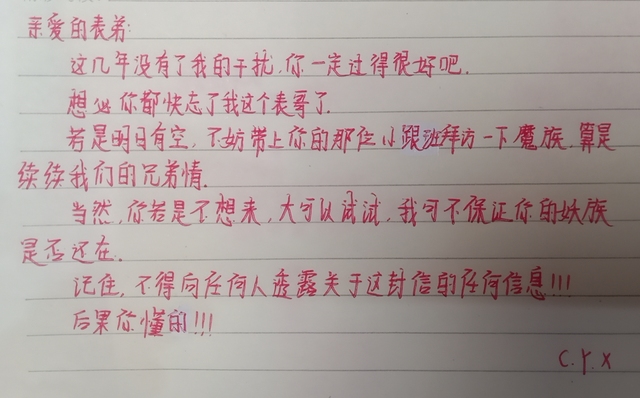 亲爱的表弟:
这几年没有了我的干扰,你一定过得很好吧.
想必你都快忘了我这个表哥了.
若是明日有空,不妨带上你的那位小跟班拜访一下魔族,算是
续续我们的兄弟情.
当然,你若是不想来,大可以试试,我可不保证你的妖族
是否还在.
记住,不得向任何人透露关于这封信的任何信息!!!
后果你懂的!!!
C.Y.X